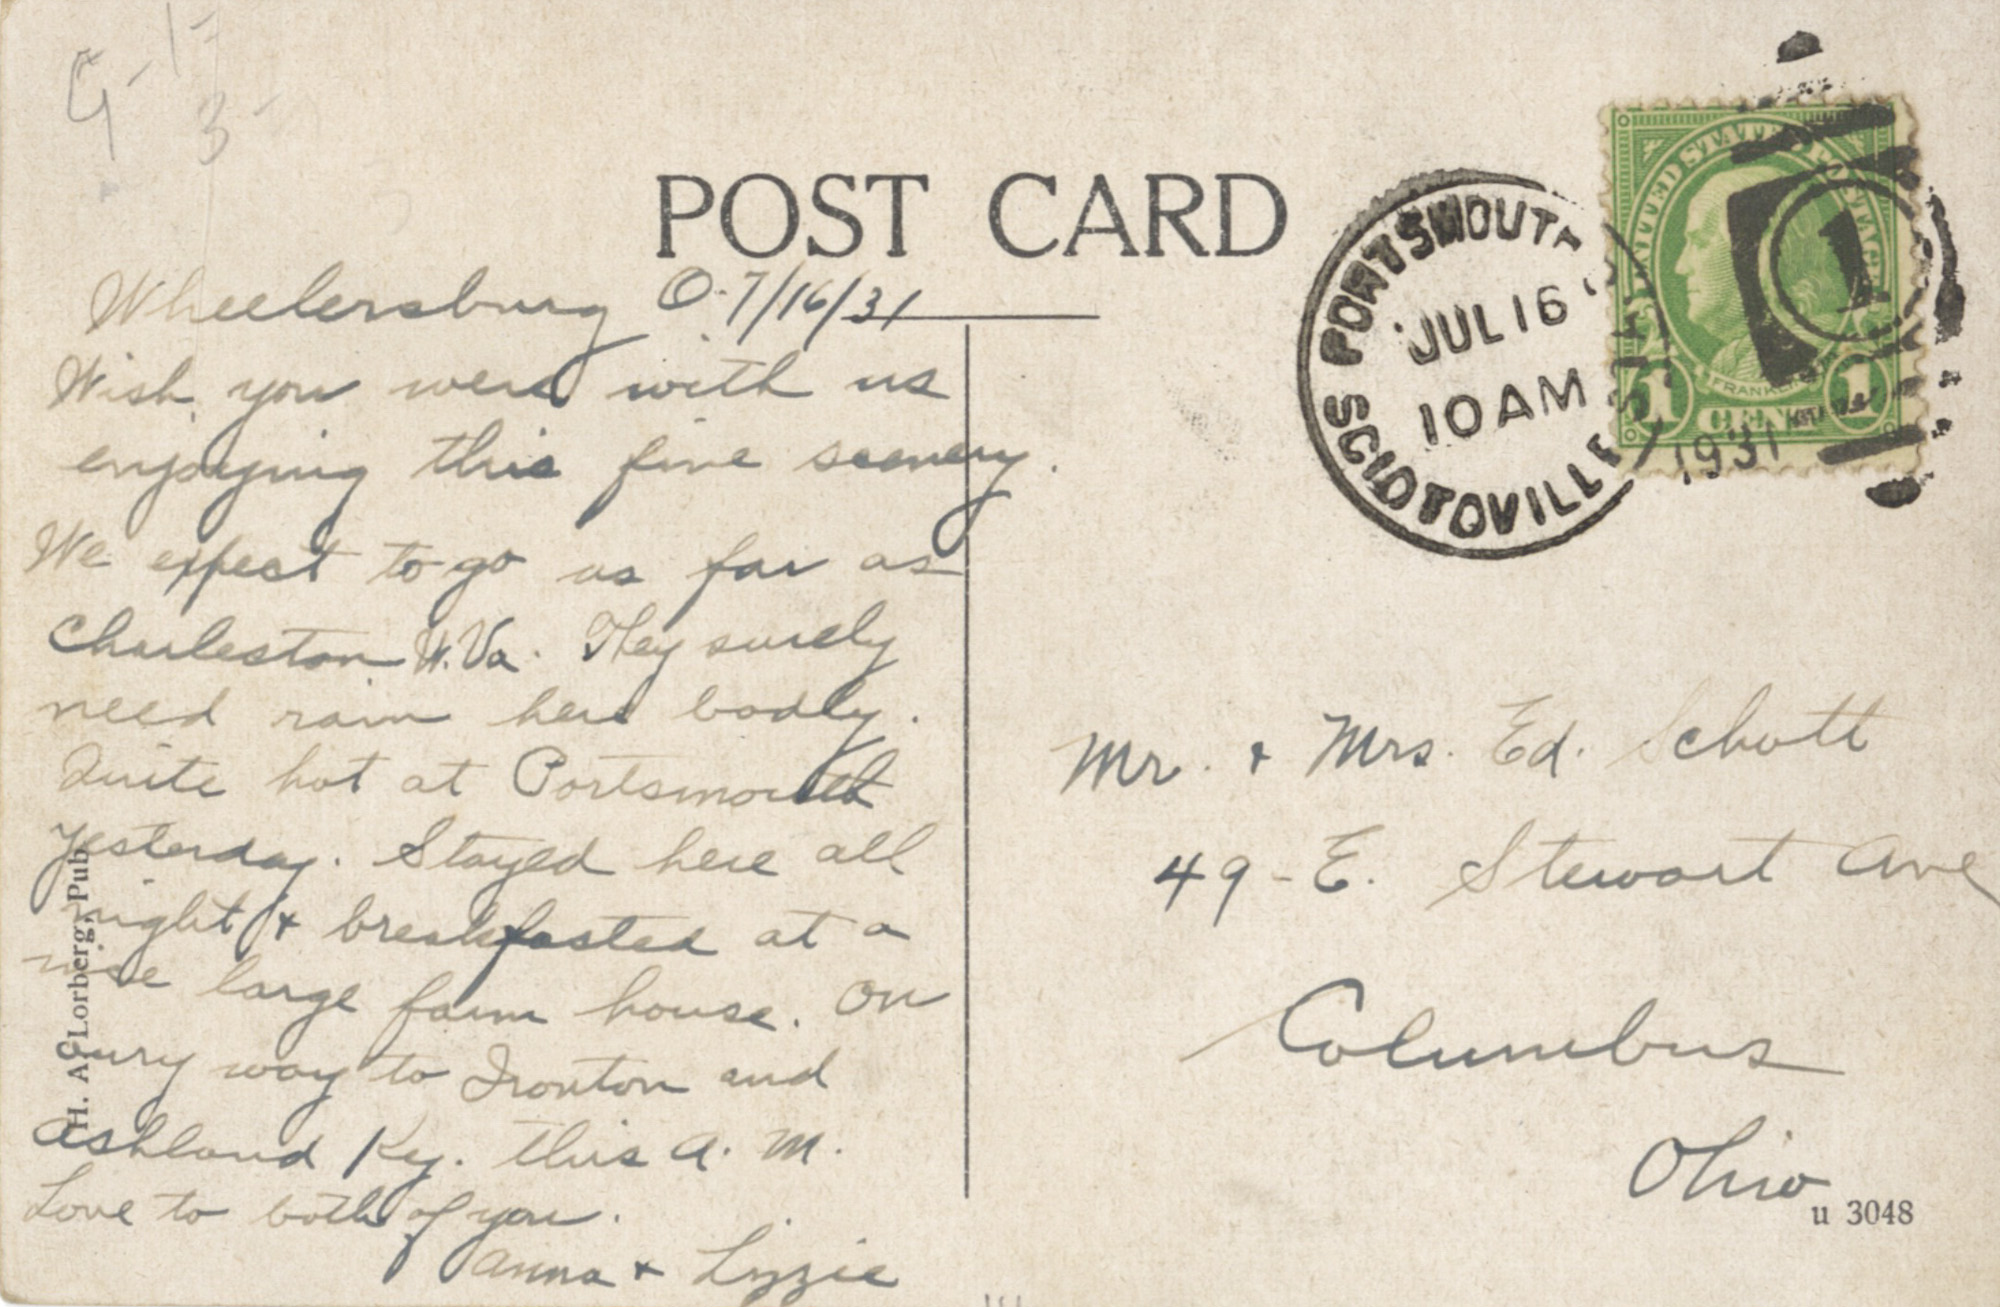 G - 1 -
3 -
POST CARD
Wheelersburg O. 7/16/31
Wish you were with us
enjoying this fine scenery.
We expect to go as far as
Charleston W. Va. They surely
need rain here badly.
Quite hot at Portsmouth
yesterday. Stayed here all
night & breakfasted at a
nice large farm house. On
our way to Ironton and
Ashland Ky. this A. M.
Love to both of you.
Anna & Lizzie
H. A. Lorberg, Pub.
PORTSMOUTH
JUL 16
10 AM
1931
SCIOTOVILLE STA.
UNITED STATES POSTAGE
FRANKLIN
1 CENT 1
1
Mr. & Mrs. Ed. Schott
49 - E. Stewart Ave
Columbus
Ohio
u 3048